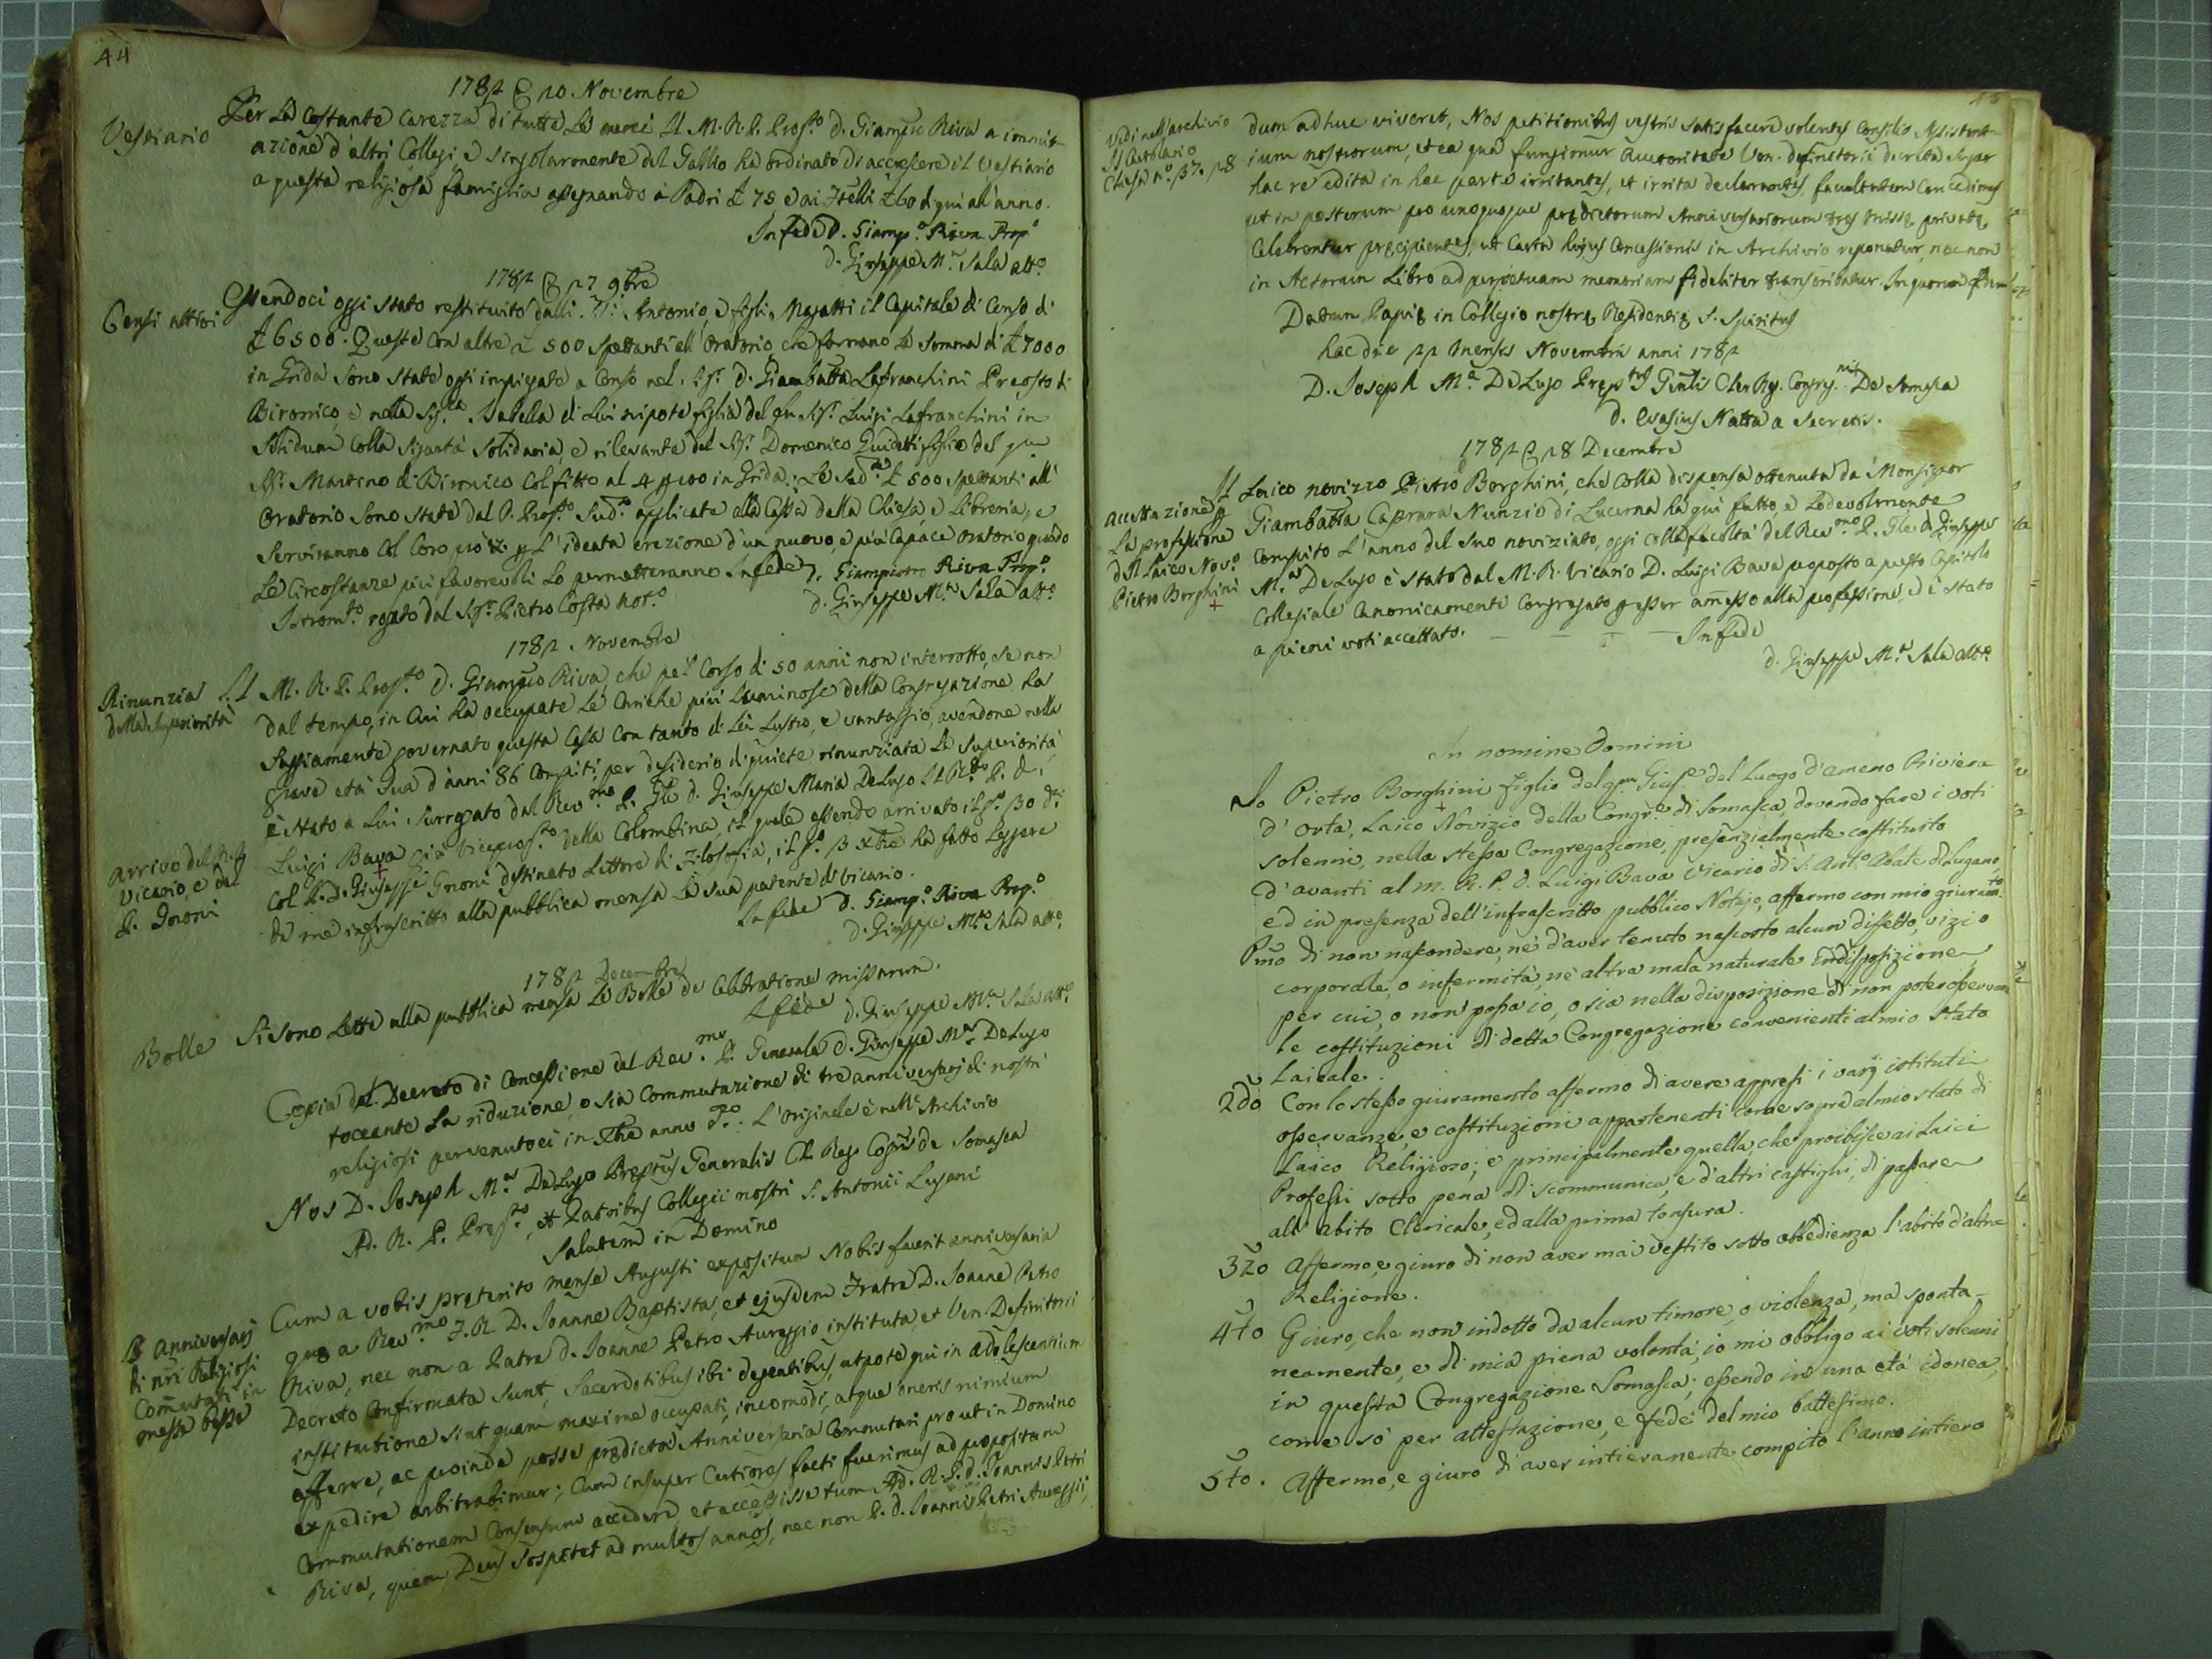 44
1782 10 Novembre
Vestiario
Per la costante carezza di tutte le merci Il M. R. P. Prop.to d. Giampro Riva a immit-
azione d'altri Collegi e singolarmente del Gallio ha ordinato di accrescere il Vestiario
a questa religiosa famiglia assegnando a Padri £ 78 e ai Ftelli £ 60 di qui all'anno.
In fede d. Giamp.o Riva Prop.o
d. Giuseppe M.a Sala att.o
1782 27 9bre
Censi attivi
Essendoci oggi stato restituito dalli Antonio, e figli Magatti il Capitale di Censo di
£ 6500. Queste con altre £ 500 spettanti all'Oratorio, che formano la somma di £ 7000
in Grida sono state oggi impiegate a Censo nel Sig.r d. Giambatta Lafranchini Preosto di
Bironico, e nella Sig.ra Isabella di lui nipote figlia del qu. Sig.r Luigi Lafranchini in
solidum colla sigurtà solidaria, e rilevante del Sig.r Domenico Guidetti figlio del qu
Sig.r Martino di Bironico col fitto al 4 p 100 in Grida. Le Sud.e £ 500 spettanti all'
Oratorio sono state dal P. Prop.to Sud.o applicate alla Cassa della Chiesa, e Libreria, e
serviranno col loro L'ideata erezione d'un nuovo, e più capace Oratorio quando
le circostanze più favorevoli lo permetteranno. In fede d. Giampietro Riva Prop.o
Istrom.to rogato dal Sig.r Pietro Costa Not.o d. Giuseppe M.a Sala att.o
1782. Novembre
Rinunzia
della Superiorità
Il M. R. P. Prop.to D. Giampro Riva, che pel corso di 50 anni non interrotto, se non
dal tempo, in cui ha occupate le cariche più luminose della Congregazione ha
saggiamente governato questa Casa con tanto di lei lustro, e vantaggio, avendone nella
grave età sua d'anni 86 compiti, per desiderio di quiete rinunziata la Superiorità
è stato a lui surrogato dal Rev.mo P. Gle d. Giuseppe Maria DeLugo Il R.do P. D.
Luigi Bava già Viceprop.to della Colombina, il quale essendo arrivato il g. 30 d.o
col P. D. Giuseppe Gnoni destinato Lettore di Filosofia, il g. 3 Xbre ha fatto leggere
da me infrascritto alla pubblica mensa la sua patente di Vicario.
Arrivo del P.
Vicario, e del
P. Gnoni
In fede d. Giamp.o Riva Prop.o
d. Giuseppe M.a Sala att.o
1782 Decembre
Bolle
Si sono lette alla pubblica mensa le Bolle de Celebratione missarum.
In fede d. Giuseppe M.a Sala att.o
Copia del Decreto di Concessione del Rev.mo P. Generale d. Giuseppe M.a DeLugo
toccante la riduzione, o sia Commutazione di tre anniversarj di nostri
religiosi pervenutoci in Xbre anno d.o: L'originale è nell'Archivio
Nos D. Joseph M.a DeLugo Prepitus Generalis Cl. Reg. Cogñis de Somasca
Ad. R. P. Prep.to, et Patribus Collegii nostri S. Antonii Lugani
Salutem in Domino
3 Anniversarj
di nri Religiosi
Commutati in
messe basse
Cum a vobis preterito mense Augusti expositum Nobis fuerit anniversaria
que a Rev.mo F. R. D. Joanne Baptista, et ejusdem Fratre D. Joanne Petro
Riva, nec non a Patre d. Joanne Petro Aureggio instituta et Ven. Definitorii
Decreto confirmata sunt, Sacerdotibus ibi degentibus, utpote qui in adolescentium
institutione sint quam maxime occupati, incomodi, atque oneris nimium
afferre, ac proinde posse predicta Anniversaria Commutari pro ut in Domino
expedire arbitrabimur; Cum insuper Certiores facti fuerimus ad propositam
Commutationem Consensum accedere et accessisse tum Ad. R. P. d. Joannis Petri
Riva, quem Deus Sospitet ad multos annos, nec non P. d. Joannis Petri Aureggii,
45
Vedi nell'archivio
Il Cartolario
Chiesa n.o
dum adhuc viveret, Nos petitionibus vestris satisfacere volentes Consilio Assistent-
ium nostrorum, et ea qua fungimur auctoritate Ven. Definitorii decreta super
hac re edita in hac parte irritantes, et irrita declarantes, facultatem Concedimus
ut in posterum pro unoquoque predictorum Anniversariorum tres Misse private
Celebrentur precipientes, ut Carta hujus Concessionis in Archivio reponatur, nec non
in Actorum Libro ad perpetuam memoriam fideliter transcribatur. In quorum fidem
Datum Papie in Collegio nostre Residentie S. Spiritus
hac die 22 mensis Novembris anni 1782
D. Joseph M.a De Lugo Prep.tus Gnlis Cler. Reg. Congreg.nis De Somasca
d. Evasius Natta a Secretis.
1782 28 Decembre
Accettazione p
la professione
del Laico Nov.o
Pietro Borghini
Il Laico novizzo Pietro Borghini, che colla dispensa ottenuta da Monsignor
Giambatta Caprara Nunzio di Lucerna ha qui fatto, e lodevolmente
compito l'anno del suo noviziato, oggi colla facoltà del Rev.mo P. Gle d. Giuseppe
M.a De Lugo è stato dal M. R. Vicario D. Luigi Bava proposto a questo Capitolo
Collegiale Canonicamente Congregato p esser ammesso alla professione, ed è stato
a pieni voti accettato. In fede
d. Giuseppe M.a Sala att.o
In nomine Domini
Io Pietro Borghini figlio del qm Gius.e del Luogo d'ameno Riviera
d'Orta, Laico Novizio della Congr.e di Somasca, dovendo fare i voti
solenni, nella stessa Congregazione, presenzialmente costituito
d'avanti al m. R. P. D. Luigi Bava Vicario di S. Ant.o Abate di Lugano,
ed in presenza dell'infrascritto pubblico Notajo, affermo con mio giuram.to
Pmo di non nascondere, nè d'aver tenuto nascosto alcun diffetto, vizio
corporale, o infermità, nè altra mala naturale indisposizione
per cui, o non possa io, o sia nella disposizione di non poter osservare
le costituzioni di detta Congregazione convenienti al mio stato
Laicale.
2do Con lo stesso giuramento affermo di avere appresi i varj istituti
osservanze, e costituzioni appartenenti come sopra al mio stato di
Laico Religioso; e principalmente quella, che proibisce ai Laici
Professi sotto pena di scommunica, e d'altri castighi, di passare
all'abito Clericale, ed alla prima tonsura.
3zo Affermo, e giuro di non aver mai vestito sotto obbedienza l'abito d'altra
Religione.
4to Giuro, che non indotto da alcun timore, o violenza, ma sponta-
neamente, e di mia piena volontà, io mi obbligo ai voti solenni
in questa Congregazione Somasca; essendo in una età idonea,
come sò per attestazione, e fede del mio battesimo.
5to. Affermo, e giuro di aver intieramente compito l'anno intiero